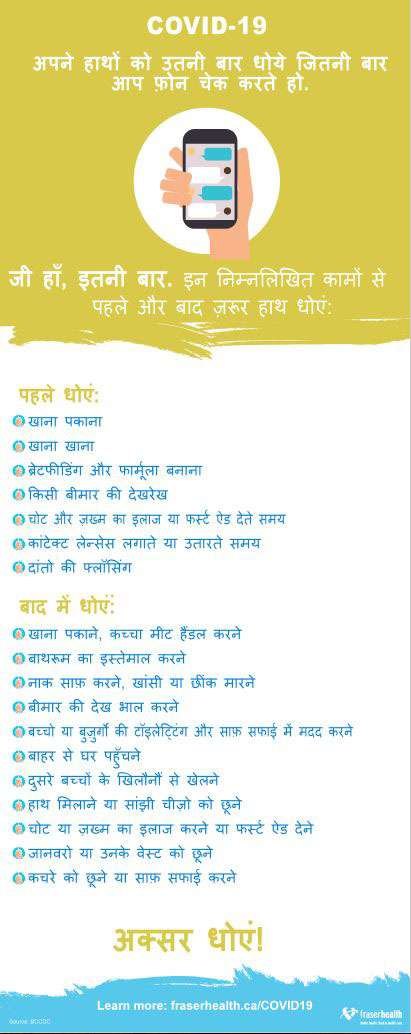 COVID-19
अपने हाथों को उतनी बार धोये जितनी बार
आप फ़ोन चेक करते हो.
जी हाँ, इतनी बार. इन निम्नलिखित कामों से
पहले और बाद ज़रूर हाथ धोएं:
पहले धोएं:
खाना पकाना
खाना खाना
ब्रेटफीडिंग और फार्मूला बनाना
किसी बीमार की देखरेख
चोट और ज़ख्म का इलाज या फर्स्ट ऐड देते समय
कांटेक्ट लेन्सेस लगाते या उतारते समय
दांतो की फ्लॉसिंग
बाद में धोएं:
खाना पकाने, कच्चा मीट हैंडल करने
बाथरूम का इस्तेमाल करने
नाक साफ़ करने, खांसी या छींक मारने
बीमार की देख भाल करने
बच्चों या बुज़ुर्गो की टॉइलेट्टिंग और साफ़ सफाई में मदद करने
बाहर से घर पहुँचने
दुसरे बच्चों के खिलौनौं से खेलने
हाथ मिलाने या सांझी चीज़ो को छूने
चोट या ज़ख्म का इलाज करने या फर्स्ट ऐड देने
जानवरो या उनके वेस्ट को छूने
कचरे को छूने या साफ़ सफाई करने
अक्सर धोएं!
Learn more: fraserhealth.ca/COVID19
Source: BCCDC
fraserhealth
Better health. Best in health care.